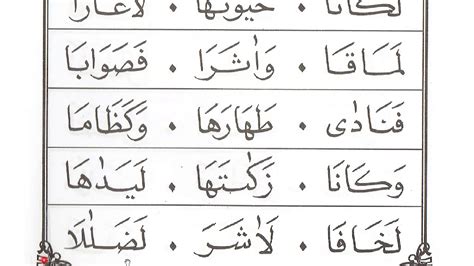 لَكَانَا • حَيٰوتُهَا • لَاعَارَا
لَمَاقَا • وَاٰثَرَا • فَصَوَابَا
فَنَادٰى • طَهَارَهَا • وَكَظَامَا
وَكَانَا • زَكٰتَهَا • لَيَدٰهَا
لَخَافَا • لَاَشَرَ • لَضَلٰلَا